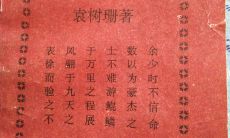 袁树珊著
余少时不信命
数以为豪杰之
士不难游鲲鳞
于万里之程展
凤翮于九天之
表徐而验之不